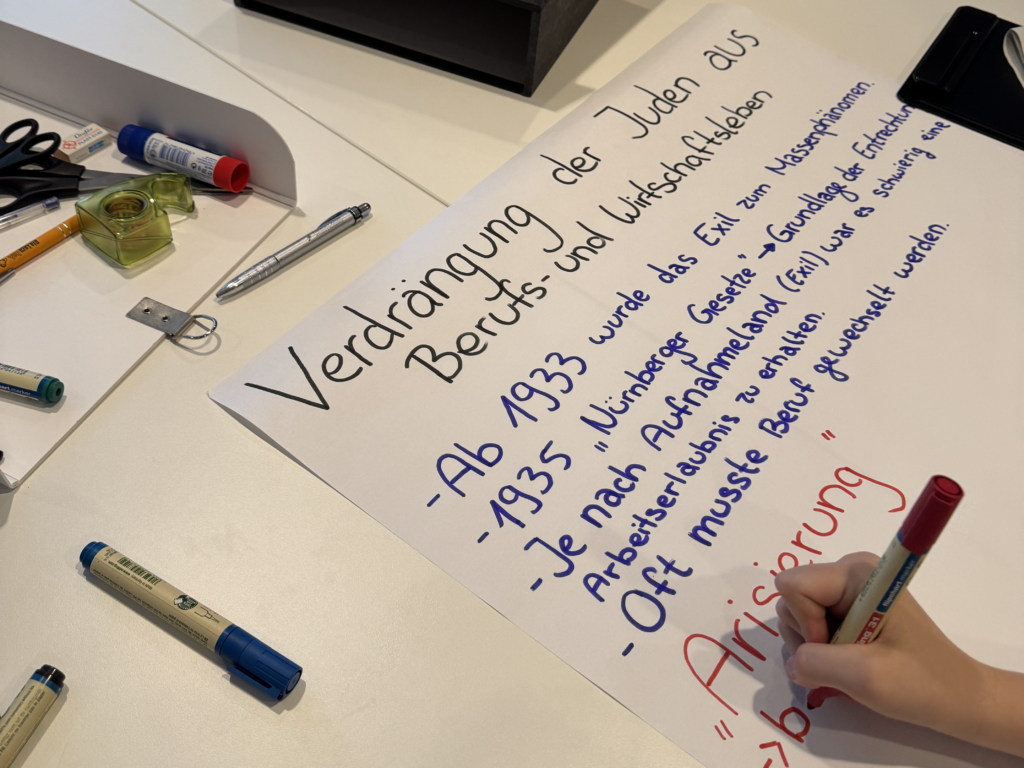 Verdrängung der Juden aus
Berufs- und Wirtschaftsleben
- Ab 1933 wurde das Exil zum Massenphänomen.
- 1935 „Nürnberger Gesetze" → Grundlage der Entrechtung
- Je nach Aufnahmeland (Exil) war es schwierig eine
Arbeitserlaubnis zu erhalten.
- Oft musste Beruf gewechselt werden.
„Arisierung"
-> b